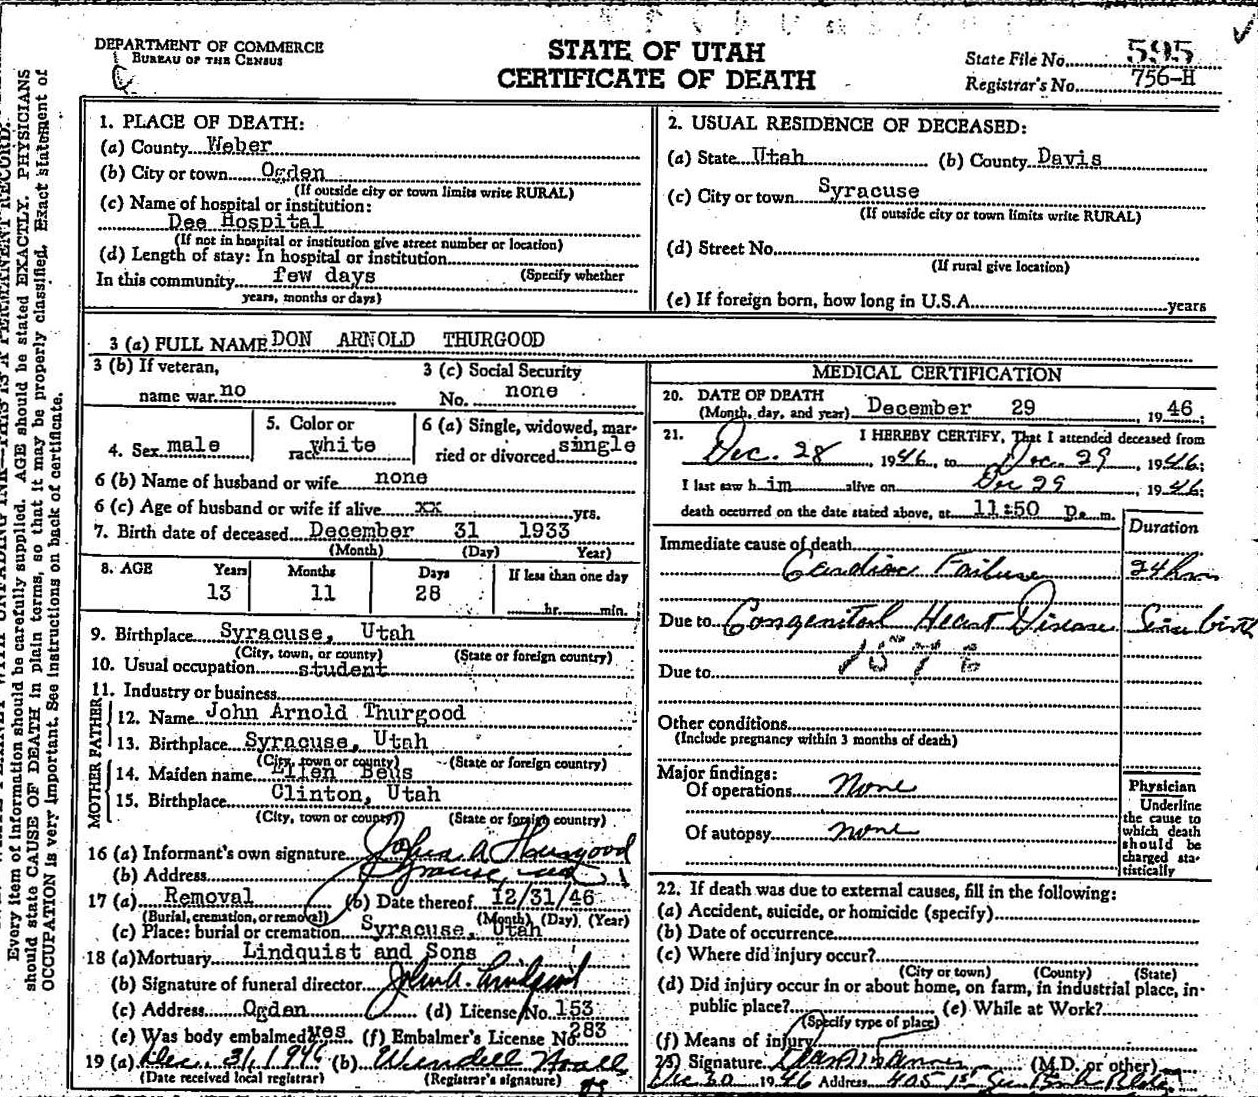 DEPARTMENT OF COMMERCE
BUREAU OF THE CENSUS
STATE OF UTAH
CERTIFICATE OF DEATH
State File No. 595
Registrar's No. 756-H
Every item of information should be carefully supplied. AGE should be stated EXACTLY. PHYSICIANS
should state CAUSE OF DEATH in plain terms, so that it may be properly classified. Exact statement of
OCCUPATION is very important. See instructions on back of certificate.
1. PLACE OF DEATH:
(a) County Weber
(b) City or town Ogden
(If outside city or town limits write RURAL)
(c) Name of hospital or institution:
Dee Hospital
(If not in hospital or institution give street number or location)
(d) Length of stay: In hospital or institution
(Specify whether
In this community few days
years, months or days)
2. USUAL RESIDENCE OF DECEASED:
(a) State Utah (b) County Davis
(c) City or town Syracuse
(If outside city or town limits write RURAL)
(d) Street No.
(If rural give location)
(e) If foreign born, how long in U.S.A. years
3 (a) FULL NAME DON ARNOLD THURGOOD
3 (b) If veteran,
name war. no
3 (c) Social Security
No. none
4. Sex male
5. Color or
race white
6 (a) Single, widowed, mar-
ried or divorced single
6 (b) Name of husband or wife none
6 (c) Age of husband or wife if alive xx yrs.
7. Birth date of deceased December 31 1933
(Month) (Day) Year)
8. AGE Years Months Days If less than one day
13 11 28 hr. min.
9. Birthplace Syracuse, Utah
(City, town, or county) (State or foreign country)
10. Usual occupation student
11. Industry or business
FATHER
12. Name John Arnold Thurgood
13. Birthplace Syracuse, Utah
(City, town or county) (State or foreign country)
MOTHER
14. Maiden name Ellen Beus
15. Birthplace Clinton, Utah
(City, town or county) (State or foreign country)
16 (a) Informant's own signature John A Thurgood
(b) Address Syracuse
17 (a) Removal (b) Date thereof 12/31/46
(Burial, cremation, or removal) (Month) (Day) (Year)
(c) Place: burial or cremation Syracuse, Utah
18 (a) Mortuary Lindquist and Sons
(b) Signature of funeral director John A. Lindquist
(c) Address Ogden (d) License No. 153
(e) Was body embalmed yes (f) Embalmer's License No. 283
19 (a) Dec. 31, 1946 (b) Wendell
(Date received local registrar) (Registrar's signature)
MEDICAL CERTIFICATION
20. DATE OF DEATH
(Month, day, and year) December 29, 1946;
21. I HEREBY CERTIFY, That I attended deceased from
Dec. 28, 1946, to Dec. 29, 1946;
I last saw h im alive on Dec 29, 1946;
death occurred on the date stated above, at 11:50 p. m.
Duration
Immediate cause of death
Cardiac Failure 24 hrs
Due to Congenital Heart Disease Since birth
157 B
Due to
Other conditions
(Include pregnancy within 3 months of death)
Major findings:
Of operations None
Of autopsy none
Physician
Underline
the cause to
which death
should be
charged sta-
tistically
22. If death was due to external causes, fill in the following:
(a) Accident, suicide, or homicide (specify)
(b) Date of occurrence
(c) Where did injury occur?
(City or town) (County) (State)
(d) Did injury occur in or about home, on farm, in industrial place, in-
public place? (e) While at Work?
(Specify type of place)
(f) Means of injury
23) Signature (M.D. or other)
Dec 30 1946 Address 405 1st